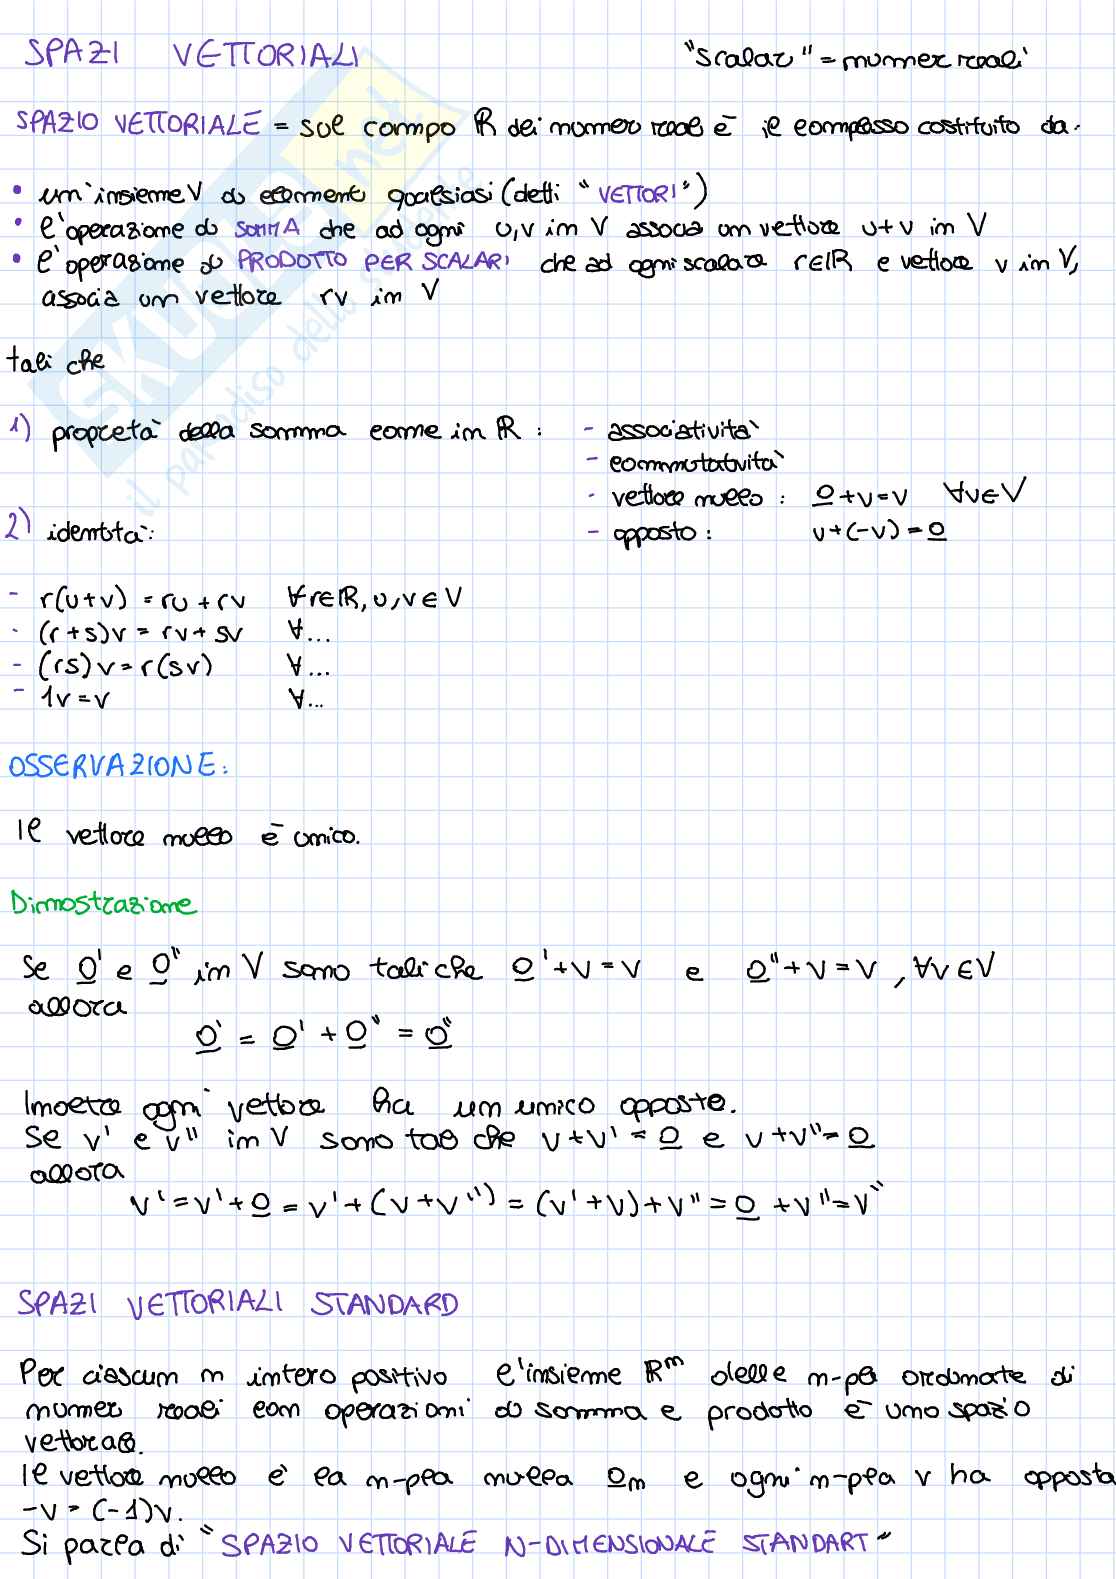 SPAZI VETTORIALI "scalari" = numeri reali
SPAZIO VETTORIALE = sul campo ℝ dei numeri reali è il complesso costituito da:
• un'insieme V di elementi qualsiasi (detti "VETTORI")
• l'operazione di SOMMA che ad ogni u,v in V associa un vettore u+v in V
• l'operazione di PRODOTTO PER SCALARI che ad ogni scalare r∈ℝ e vettore v in V,
associa un vettore rv in V
tali che
1) proprietà della somma come in ℝ : - associatività
- commutatività
- vettore nullo : 0+v=v ∀v∈V
2) identità: - opposto : v+(-v)=0
- r(u+v) = ru + rv ∀r∈ℝ, u,v∈V
- (r+s)v = rv + sv ∀...
- (rs)v = r(sv) ∀...
- 1v = v ∀...
OSSERVAZIONE:
Il vettore nullo è unico.
Dimostrazione
Se 0' e 0'' in V sono tali che 0'+v=v e 0''+v=v, ∀v∈V
allora
0' = 0' + 0'' = 0''
Inoltre ogni vettore ha un unico opposto.
Se v' e v'' in V sono tali che v+v'=0 e v+v''=0
allora
v'=v'+0=v'+(v+v'')=(v'+v)+v''=0+v''=v''
SPAZI VETTORIALI STANDARD
Per ciascun n intero positivo l'insieme ℝⁿ delle n-ple ordinate di
numeri reali con operazioni di somma e prodotto è uno spazio
vettoriale.
Il vettore nullo è la n-pla nulla 0n e ogni n-pla v ha opposta
-v = (-1)v.
Si parla di "SPAZIO VETTORIALE N-DIMENSIONALE STANDART"
SKUOLA.net
il paradiso dello studente